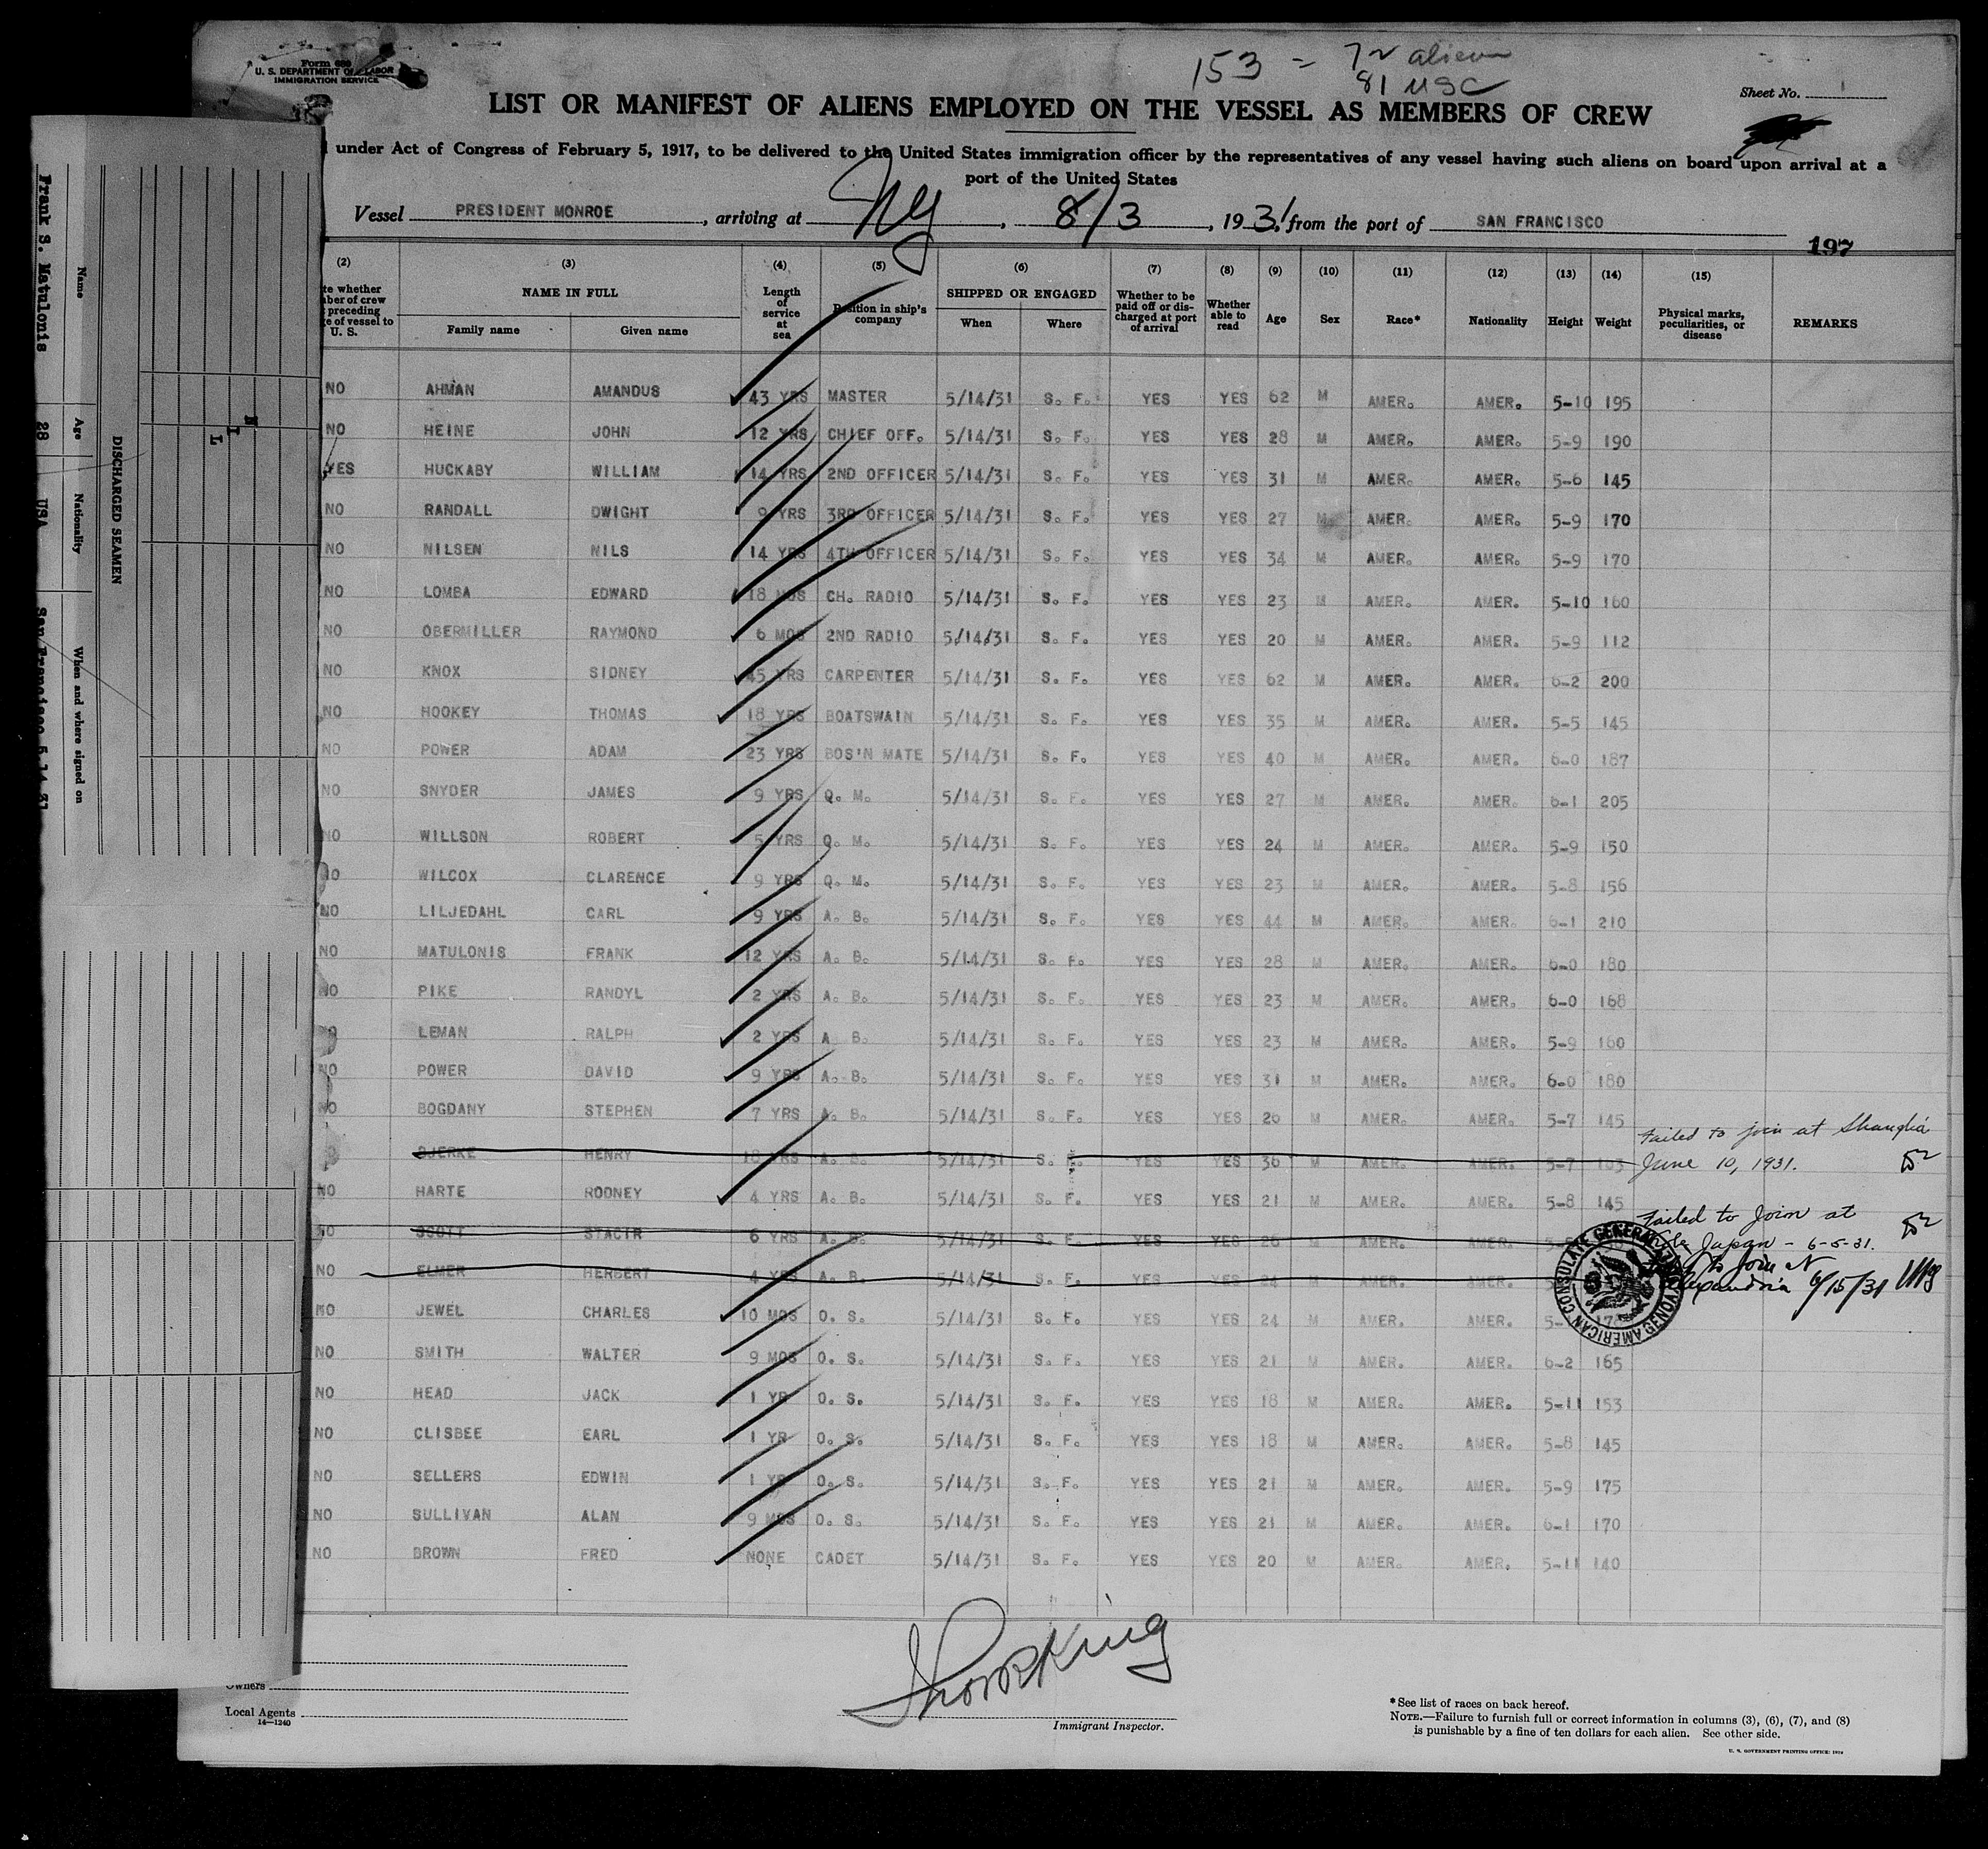 Form 680
U. S. DEPARTMENT OF LABOR
IMMIGRATION SERVICE
153 = 72 aliens
81 USC
Sheet No. 1
LIST OR MANIFEST OF ALIENS EMPLOYED ON THE VESSEL AS MEMBERS OF CREW
under Act of Congress of February 5, 1917, to be delivered to the United States immigration officer by the representatives of any vessel having such aliens on board upon arrival at a
port of the United States
Vessel PRESIDENT MONROE, arriving at NY, 8/3, 1931, from the port of SAN FRANCISCO
197
(2) (3) (4) (5) (6) (7) (8) (9) (10) (11) (12) (13) (14) (15)
te whether
ber of crew
preceding
e of vessel to
U. S.
NAME IN FULL
Family name Given name
Length
of
service
at
sea
Position in ship's
company
SHIPPED OR ENGAGED
When Where
Whether to be
paid off or dis-
charged at port
of arrival
Whether
able to
read
Age Sex Race* Nationality Height Weight
Physical marks,
peculiarities, or
disease
REMARKS
NO AHMAN AMANDUS 43 YRS MASTER 5/14/31 S. F. YES YES 62 M AMER. AMER. 5-10 195
NO HEINE JOHN 12 YRS CHIEF OFF. 5/14/31 S. F. YES YES 28 M AMER. AMER. 5-9 190
YES HUCKABY WILLIAM 14 YRS 2ND OFFICER 5/14/31 S. F. YES YES 31 M AMER. AMER. 5-6 145
NO RANDALL DWIGHT 9 YRS 3RD OFFICER 5/14/31 S. F. YES YES 27 M AMER. AMER. 5-9 170
NO NILSEN NILS 14 YRS 4TH OFFICER 5/14/31 S. F. YES YES 34 M AMER. AMER. 5-9 170
NO LOMBA EDWARD 18 MOS CH. RADIO 5/14/31 S. F. YES YES 23 M AMER. AMER. 5-10 160
NO OBERMILLER RAYMOND 6 MOS 2ND RADIO 5/14/31 S. F. YES YES 20 M AMER. AMER. 5-9 112
NO KNOX SIDNEY 45 YRS CARPENTER 5/14/31 S. F. YES YES 62 M AMER. AMER. 6-2 200
NO HOOKEY THOMAS 18 YRS BOATSWAIN 5/14/31 S. F. YES YES 35 M AMER. AMER. 5-5 145
NO POWER ADAM 23 YRS BOS'N MATE 5/14/31 S. F. YES YES 40 M AMER. AMER. 6-0 187
NO SNYDER JAMES 9 YRS Q. M. 5/14/31 S. F. YES YES 27 M AMER. AMER. 6-1 205
NO WILLSON ROBERT 5 YRS Q. M. 5/14/31 S. F. YES YES 24 M AMER. AMER. 5-9 150
NO WILCOX CLARENCE 9 YRS Q. M. 5/14/31 S. F. YES YES 23 M AMER. AMER. 5-8 156
NO LILJEDAHL CARL 9 YRS A. B. 5/14/31 S. F. YES YES 44 M AMER. AMER. 6-1 210
NO MATULONIS FRANK 12 YRS A. B. 5/14/31 S. F. YES YES 28 M AMER. AMER. 6-0 180
NO PIKE RANDYL 2 YRS A. B. 5/14/31 S. F. YES YES 23 M AMER. AMER. 6-0 168
NO LEMAN RALPH 2 YRS A B. 5/14/31 S. F. YES YES 23 M AMER. AMER. 5-9 160
NO POWER DAVID 9 YRS A. B. 5/14/31 S. F. YES YES 31 M AMER. AMER. 6-0 180
NO BOGDANY STEPHEN 7 YRS A. B. 5/14/31 S. F. YES YES 26 M AMER. AMER. 5-7 145
BJERKE HENRY 18 YRS A. B. 5/14/31 S. F. YES YES 36 M AMER. AMER. 5-7 163 Failed to join at Shanghai
June 10, 1931.
NO HARTE RODNEY 4 YRS A. B. 5/14/31 S. F. YES YES 21 M AMER. AMER. 5-8 145
NO SCOTT 6 YRS A. B. 5/14/31 S. F. YES YES 26 M AMER. AMER. Failed to Join at
Japan - 6-5-31.
NO ELMER HERBERT 4 YRS A. B. 5/14/31 S. F. YES YES 24 M AMER. AMER. to join at
Alexandria 6/15/31
AMERICAN CONSULATE GENERAL
NO JEWEL CHARLES 10 MOS O. S. 5/14/31 S. F. YES YES 24 M AMER. AMER.
NO SMITH WALTER 9 MOS O. S. 5/14/31 S. F. YES YES 21 M AMER. AMER. 6-2 165
NO HEAD JACK 1 YR O. S. 5/14/31 S. F. YES YES 18 M AMER. AMER. 5-11 153
NO CLISBEE EARL 1 YR O. S. 5/14/31 S. F. YES YES 18 M AMER. AMER. 5-8 145
NO SELLERS EDWIN 1 YR O. S. 5/14/31 S. F. YES YES 21 M AMER. AMER. 5-9 175
NO SULLIVAN ALAN 9 MOS O. S. 5/14/31 S. F. YES YES 21 M AMER. AMER. 6-1 170
NO BROWN FRED NONE CADET 5/14/31 S. F. YES YES 20 M AMER. AMER. 5-11 140
Owners
Local Agents
14—1240
Immigrant Inspector.
* See list of races on back hereof.
NOTE.—Failure to furnish full or correct information in columns (3), (6), (7), and (8)
is punishable by a fine of ten dollars for each alien. See other side.
U. S. GOVERNMENT PRINTING OFFICE: 1929
DISCHARGED SEAMEN
Name Age Nationality When and where signed on
Frank S. Matulonis 28 USA San Francisco 5-14-31
N I L